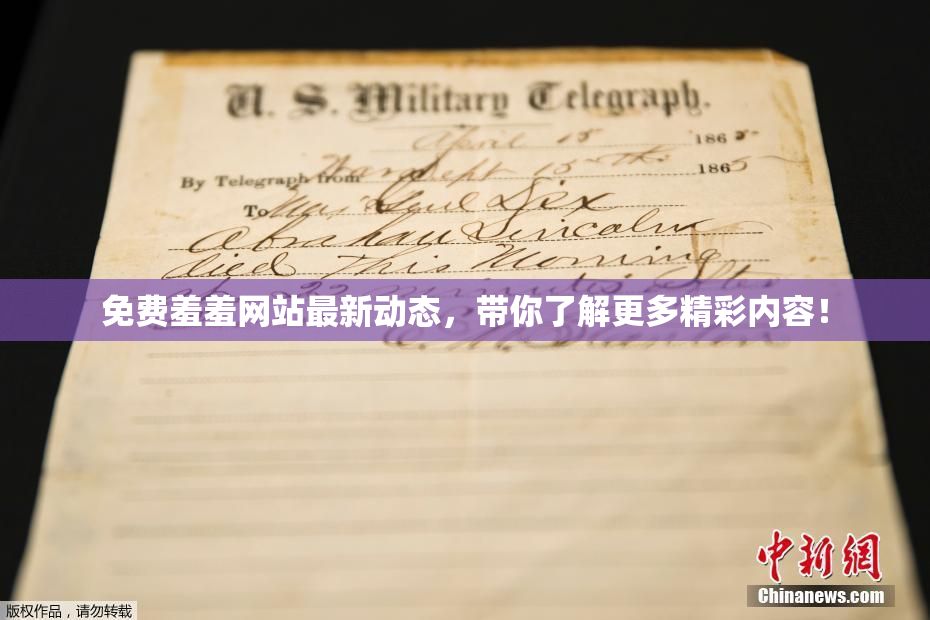 U. S. Military Telegraph.
April 15 1865
By Telegraph from War Dept 15th 1865
To Maj Genl Dix
Abraham Lincoln
died This Morning
at 22 minutes after
免费羞羞网站最新动态，带你了解更多精彩内容！
E. M. Stanton
中新网
Chinanews.com
版权作品，请勿转载